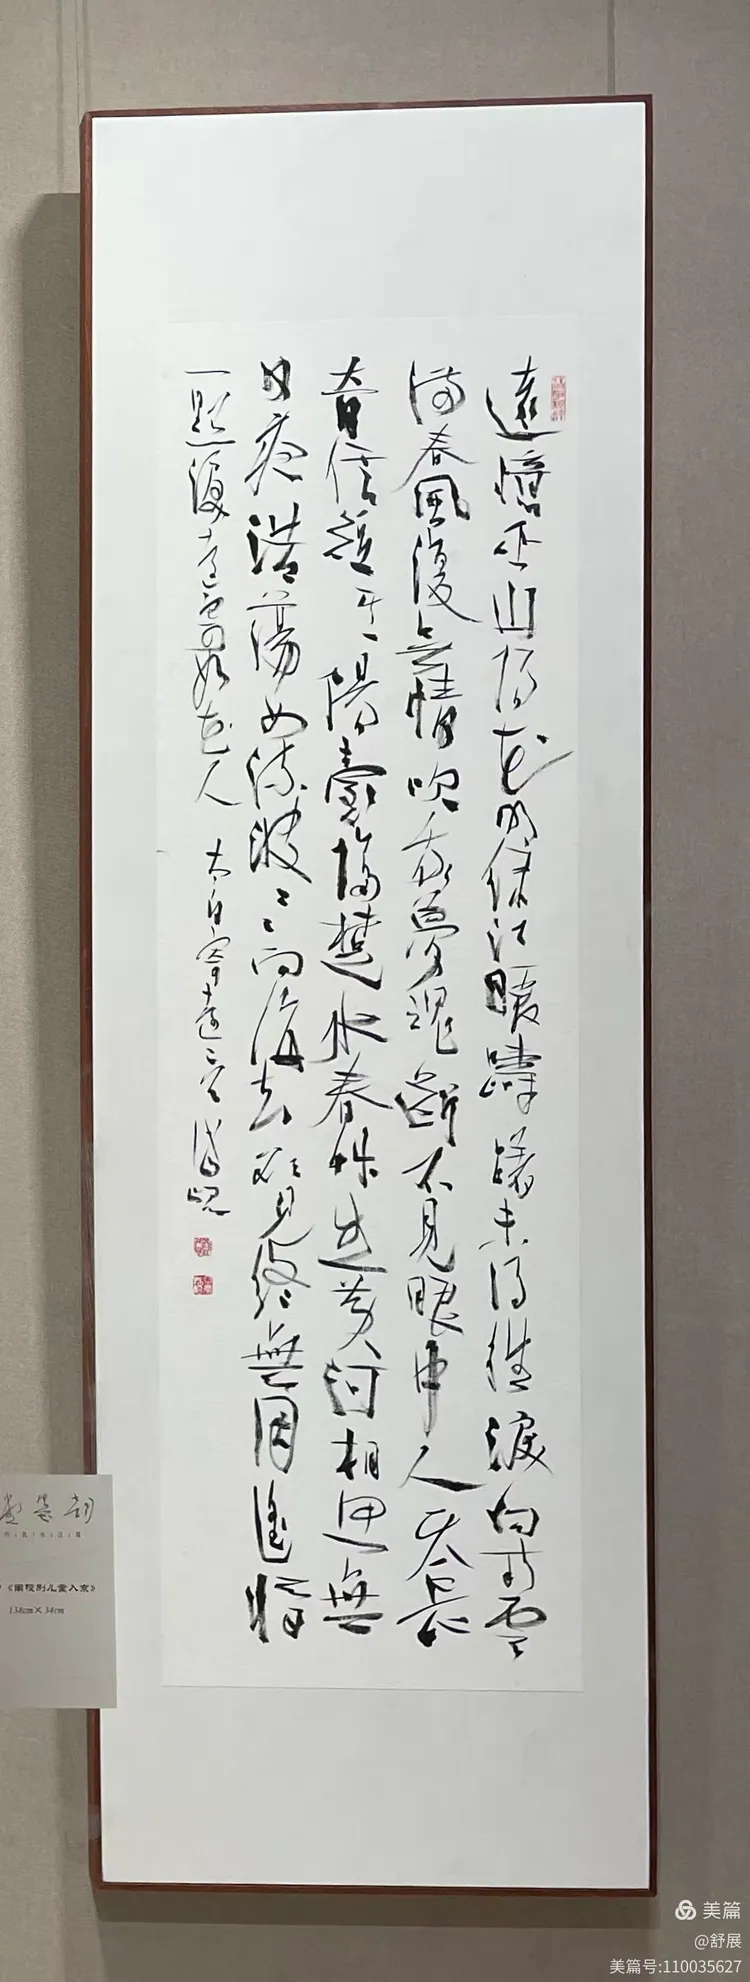 遠憶巫山陽花明渌江暖躊躇未得往淚向南雲
滿春風復無情吹我夢魂斷不見眼中人天長
音信短陽臺隔楚水春草生黄河相思無
日夜浩蕩如流波〻〻向海去欲見終無因遙將
一點淚遠寄如花人 太白寄遠二首
《南陵别儿童入京》
138cm×34cm
美篇
@舒展
美篇号:110035627